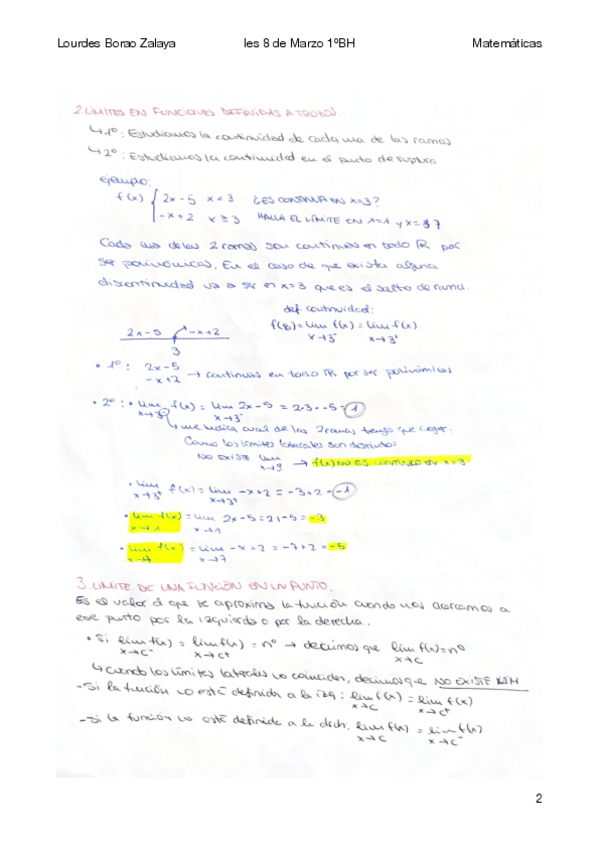 Lourdes Borao Zalaya Ies 8 de Marzo 1ºBH Matemáticas
2. LÍMITES EN FUNCIONES DEFINIDAS A TROZOS
↳ 1º: Estudiamos la continuidad de cada una de las ramas
↳ 2º: Estudiamos la continuidad en el punto de ruptura
ejemplo:
f(x) { 2x-5 x<3 ¿ES CONTINUA EN x=3?
-x+2 x≥3 HALLA EL LÍMITE EN x=1 y x=7
Cada una de las 2 ramas son continuas en todo ℝ por
ser polinómicas. En el caso de que exista alguna
discontinuidad va a ser en x=3 que es el salto de rama.
def continuidad:
2x-5 -x+2 f(3)=lim f(x) = lim f(x)
x→3⁻ x→3⁺
3
• 1º: 2x-5
-x+2 → continuas en todo ℝ por ser polinómicas
• 2º: • lim f(x) = lim 2x-5 = 2·3-5=1
x→3⁻ x→3⁻
↳ me indica cual de las 2 ramas tengo que coger.
Como los límites laterales son distintos
NO EXISTE lim → f(x) NO ES CONTINUA EN x=3
x→3
• lim f(x) = lim -x+2 = -3+2=-1
x→3⁺ x→3⁺
• lim f(x) = lim 2x-5=2·1-5=-3
x→1 x→1
• lim f(x) = lim -x+2 = -7+2=-5
x→7 x→7
3. LÍMITE DE UNA FUNCIÓN EN UN PUNTO.
Es el valor al que se aproxima la función cuando nos acercamos a
ese punto por la izquierda o por la derecha.
• Si lim f(x) = lim f(x) = nº → decimos que lim f(x)=nº
x→c⁻ x→c⁺ x→c
↳ Cuando los límites laterales no coinciden, decimos que NO EXISTE LIM
-Si la función no está definida a la izq: lim f(x) = lim f(x)
x→c x→c⁺
-Si la función no está definida a la dch: lim f(x) = lim f(x)
x→c x→c⁻
2